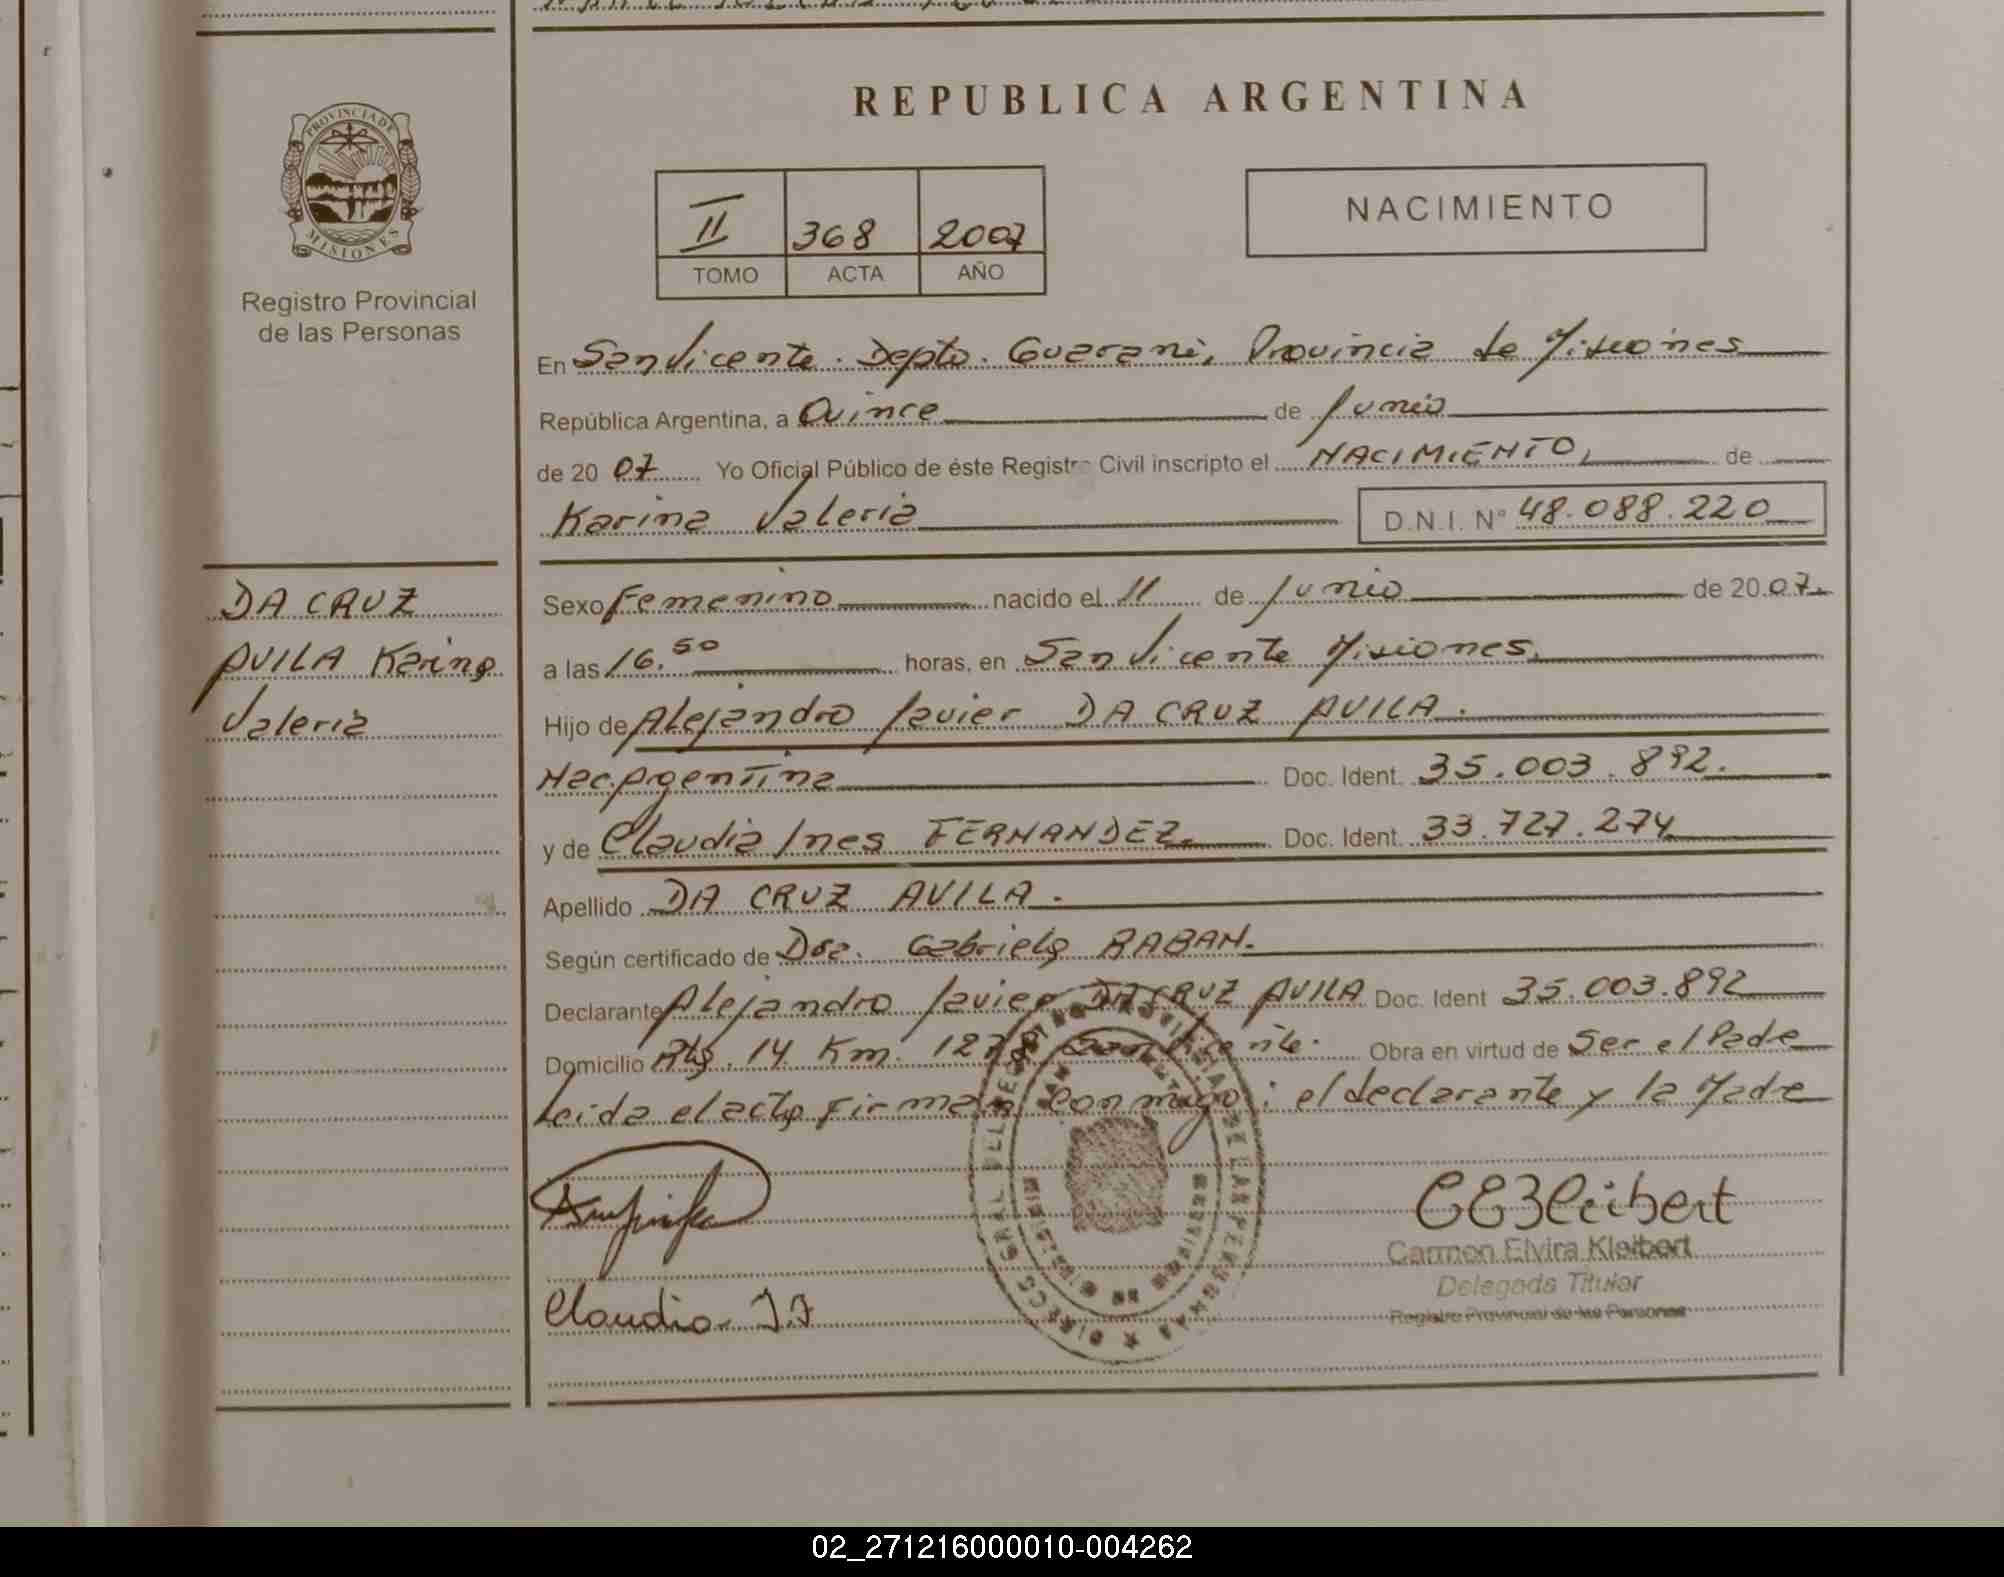 REPUBLICA ARGENTINA
PROVINCIA DE
MISIONES
Registro Provincial
de las Personas
II 368 2007
TOMO ACTA AÑO
NACIMIENTO
En San Vicente. Depto. Guarani, Provincia de Misiones
República Argentina, a Quince de Junio
de 20 07 Yo Oficial Público de éste Registro Civil inscripto el NACIMIENTO, de
Karina Valeria D.N.I. N° 48.088.220
DA CRUZ
AVILA Karina
Valeria
Sexo Femenino nacido el 11 de Junio de 20 07.
a las 16.50 horas, en San Vicente Misiones.
Hijo de Alejandro Javier DA CRUZ AVILA.
Nac. Argentina Doc. Ident. 35.003.892.
y de Claudia Ines FERNANDEZ. Doc. Ident. 33.727.274
Apellido DA CRUZ AVILA.
Según certificado de Dra. Gabriela RABAN.
Declarante Alejandro Javier DA CRUZ AVILA Doc. Ident 35.003.892
Domicilio Rta. 14 Km. 1278 San Vicente. Obra en virtud de Ser el Padre
Leida el acta firman conmigo: el declarante y la Madre
Claudia I.F
CEKleibert
Carmen Elvira Kleibert
Delegada Titular
Registro Provincial de las Personas
02_271216000010-004262